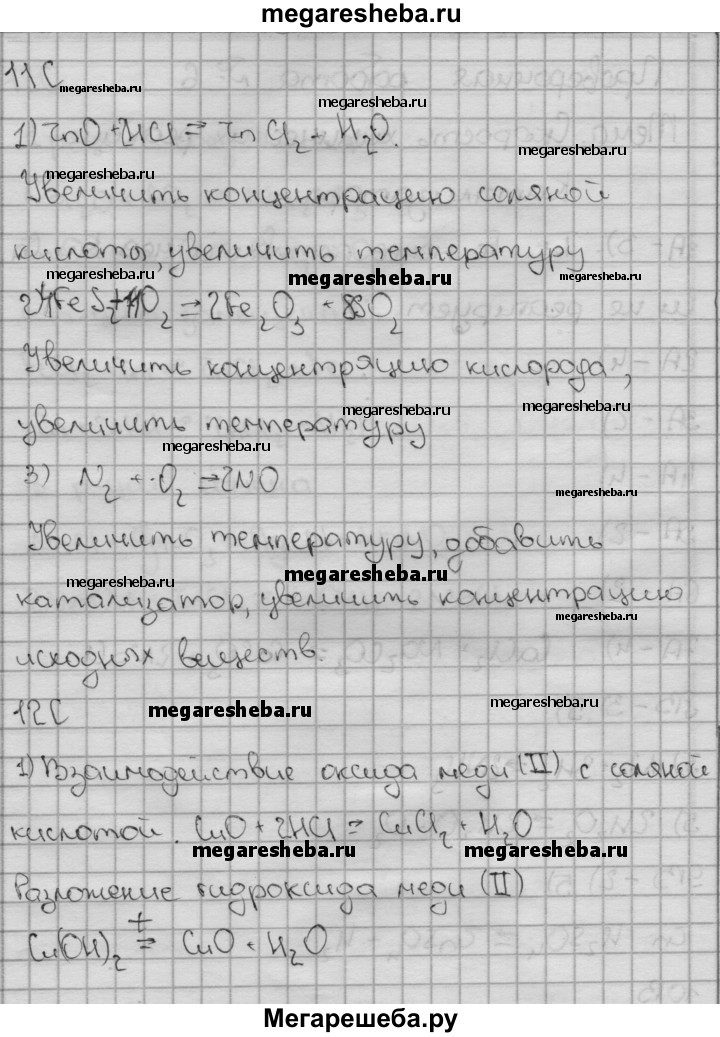 megaresheba.ru
11С
megaresheba.ru
megaresheba.ru
1) ZnO + 2HCl = ZnCl₂ + H₂O.
megaresheba.ru
Увеличить концентрацию соляной
кислоты, увеличить температуру
megaresheba.ru
megaresheba.ru
2) 4FeS₂ + 11O₂ = 2Fe₂O₃ + 8SO₂
Увеличить концентрацию кислорода,
megaresheba.ru
megaresheba.ru
увеличить температуру
megaresheba.ru
3) N₂ + O₂ = 2NO
megaresheba.ru
Увеличить температуру, добавить
megaresheba.ru
megaresheba.ru
катализатор, увеличить концентрацию
megaresheba.ru
исходных веществ.
12С
megaresheba.ru
megaresheba.ru
1) Взаимодействие оксида меди (II) с соляной
кислотой. CuO + 2HCl = CuCl₂ + H₂O
megaresheba.ru
megaresheba.ru
Разложение гидроксида меди (II)
Cu(OH)₂ =ᵗ CuO + H₂O
Мегарешеба.ру